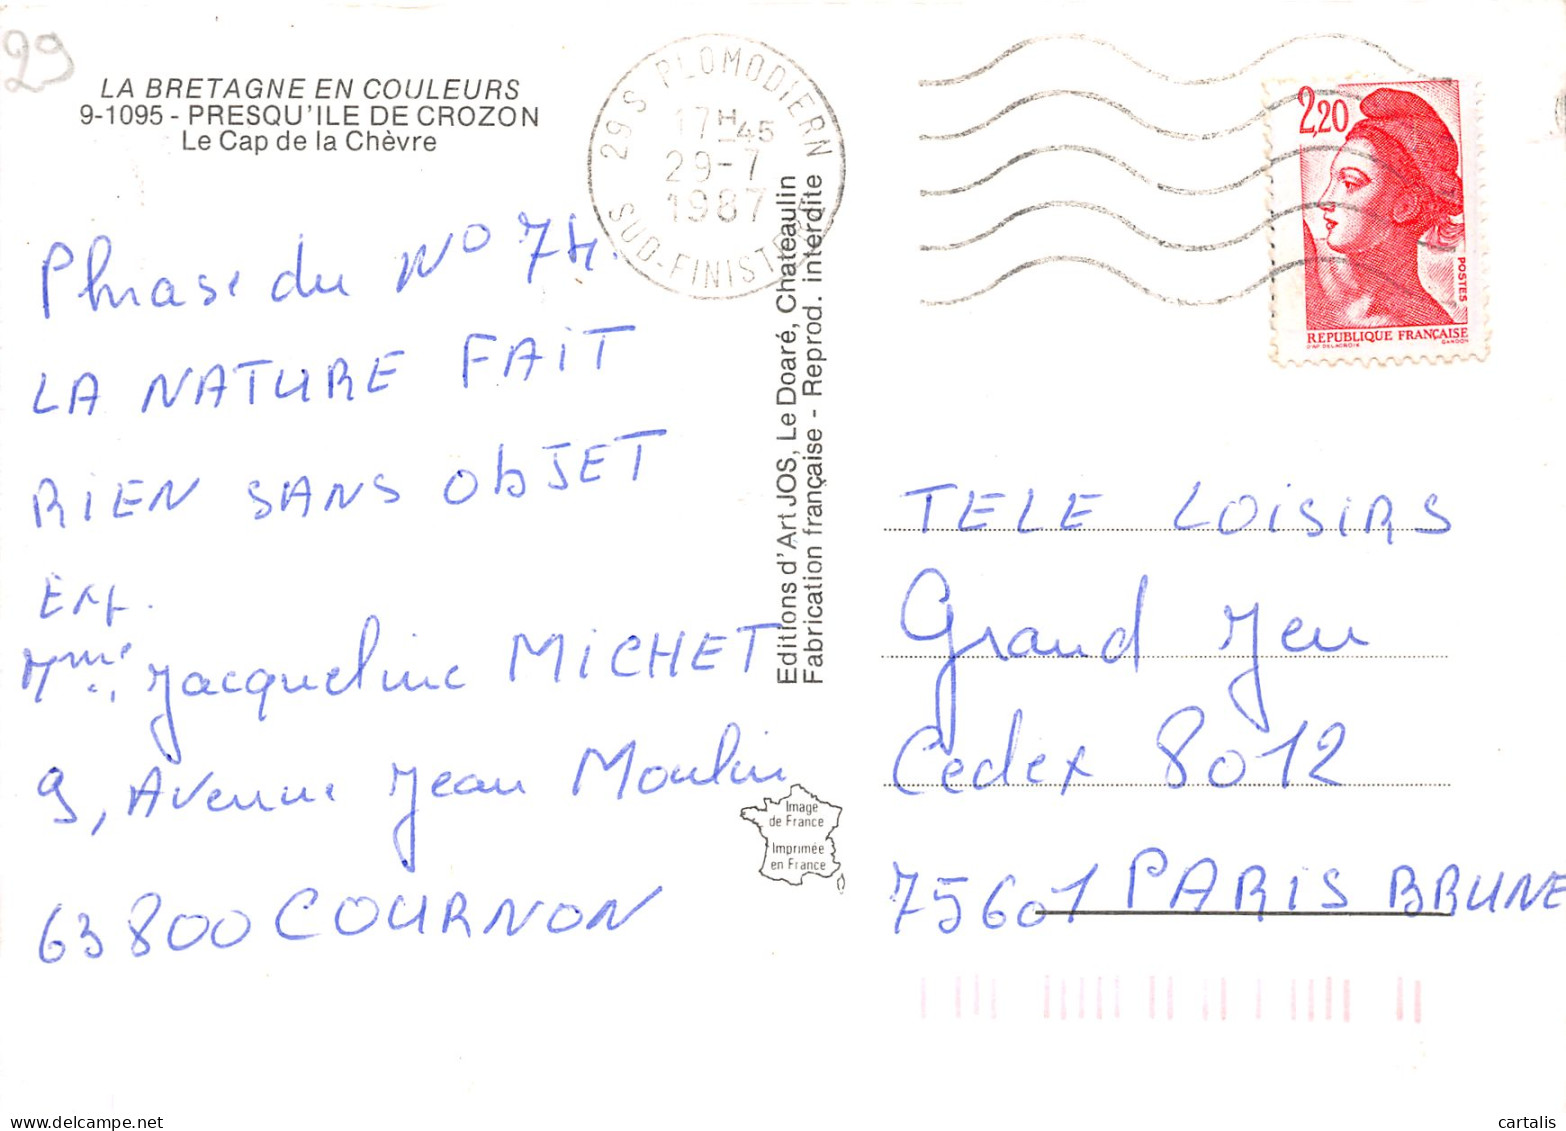 29
LA BRETAGNE EN COULEURS
9-1095 - PRESQU'ILE DE CROZON
Le Cap de la Chèvre
29 S PLOMODIERN
17H45
29-7
1987
SUD-FINISTERE
2,20
POSTES
REPUBLIQUE FRANÇAISE
D'AP. DELACROIX GANDON
Phrase du N° 74.
LA NATURE FAIT
RIEN SANS ObJET
Exp.
Mme Jacqueline MICHET
9, Avenue Jean Moulin
63800 COURNON
Editions d'Art JOS, Le Doaré, Chateaulin
Fabrication française - Reprod. interdite
Image
de France
Imprimée
en France
TELE LOISIRS
Grand Jeu
Cedex 8012
75601 PARIS BRUNE
cartalis